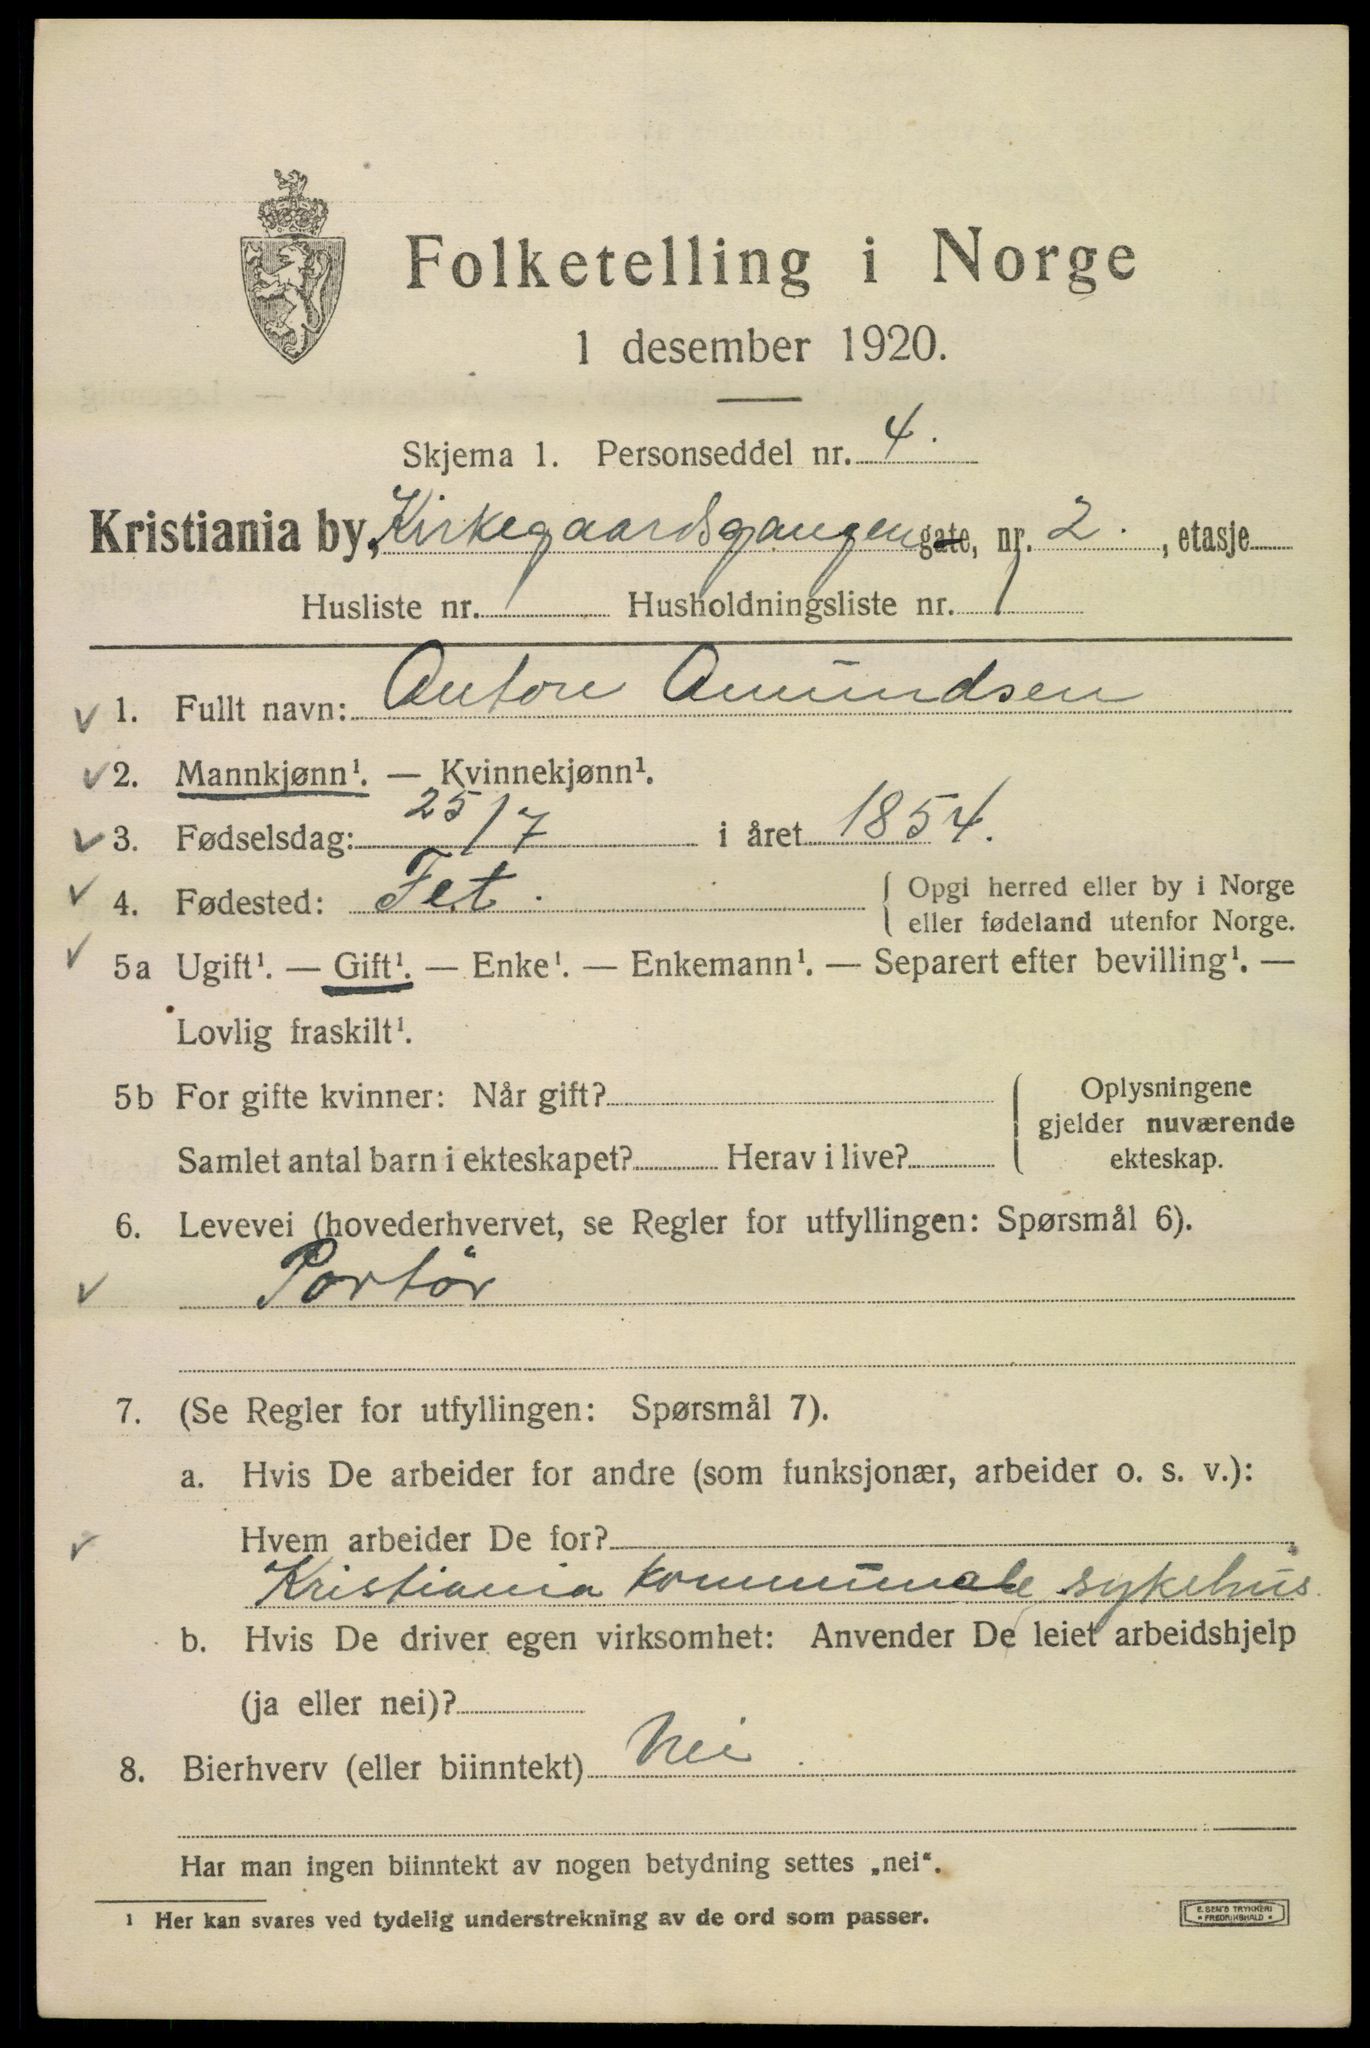 Folketelling i Norge
1 desember 1920.
Skjema 1. Personseddel nr. 4.
Kristiania by, Kirkegaardsgangen gate, nr. 2. , etasje
Husliste nr. 1 Husholdningsliste nr. 1
1. Fullt navn: Anton Amundsen
2. Mannkjønn¹. — Kvinnekjønn¹.
3. Fødselsdag: 25/7 i året 1854.
4. Fødested: Fet. { Opgi herred eller by i Norge
eller fødeland utenfor Norge.
5a Ugift¹. — Gift¹. — Enke¹. — Enkemann¹. — Separert efter bevilling¹. —
Lovlig fraskilt¹.
5b For gifte kvinner: Når gift? { Oplysningene
gjelder nuværende
Samlet antal barn i ekteskapet? Herav i live? ekteskap.
6. Levevei (hovederhvervet, se Regler for utfyllingen: Spørsmål 6).
Portör
7. (Se Regler for utfyllingen: Spørsmål 7).
a. Hvis De arbeider for andre (som funksjonær, arbeider o. s. v.):
Hvem arbeider De for?
Kristiania kommunale sykehus.
b. Hvis De driver egen virksomhet: Anvender De leiet arbeidshjelp
(ja eller nei)?
8. Bierhverv (eller biinntekt) Nei.
Har man ingen biinntekt av nogen betydning settes „nei“.
¹ Her kan svares ved tydelig understrekning av de ord som passer.
E. SEM'S TRYKKERI
* FREDRIKSHALD *